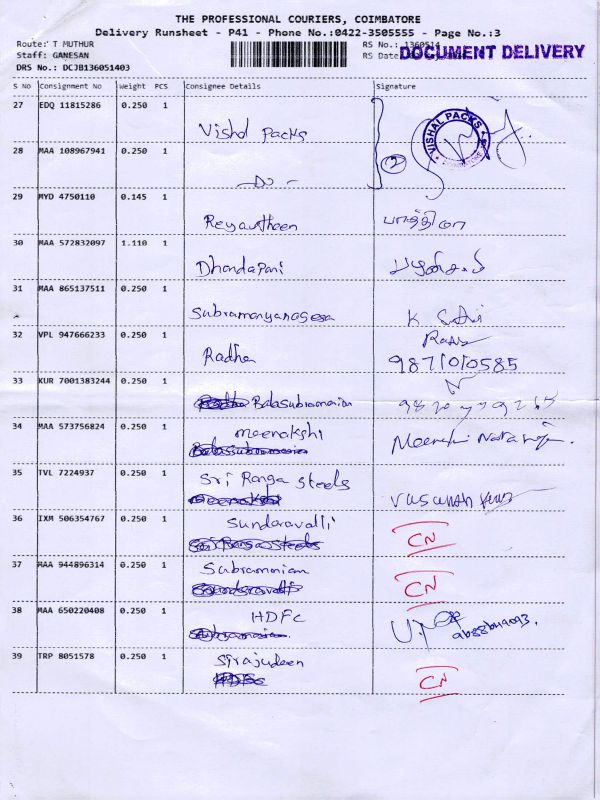 THE PROFESSIONAL COURIERS, COIMBATORE
Delivery Runsheet - P41 - Phone No.:0422-3505555 - Page No.:3
Route: T MUTHUR RS No.: 1360514
Staff: GANESAN RS Date
DOCUMENT DELIVERY
DRS No.: DCJB136051403
S No Consignment No Weight PCS Consignee Details Signature
27 EDQ 11815286 0.250 1 Vishal Packs VISHAL PACKS
28 MAA 108967941 0.250 1 - Do - 2
29 MYD 4750110 0.145 1 Reyavtheen பாத்திமா
30 MAA 572832097 1.110 1 Dhandapani
31 MAA 865137511 0.250 1 Subramanyanagesa K
32 VPL 947666233 0.250 1 Radha
9871010585
33 KUR 7001383244 0.250 1 Balasubramanian
34 MAA 573756824 0.250 1 meenakshi Meenakshi
35 TVL 7224937 0.250 1 Sri Ranga Steels Vasanth
36 IXM 506354767 0.250 1 Sundaravalli CN
37 MAA 944896314 0.250 1 Subramanian CN
38 MAA 650220408 0.250 1 HDFC
39 TRP 8051578 0.250 1 Sirajudeen CN